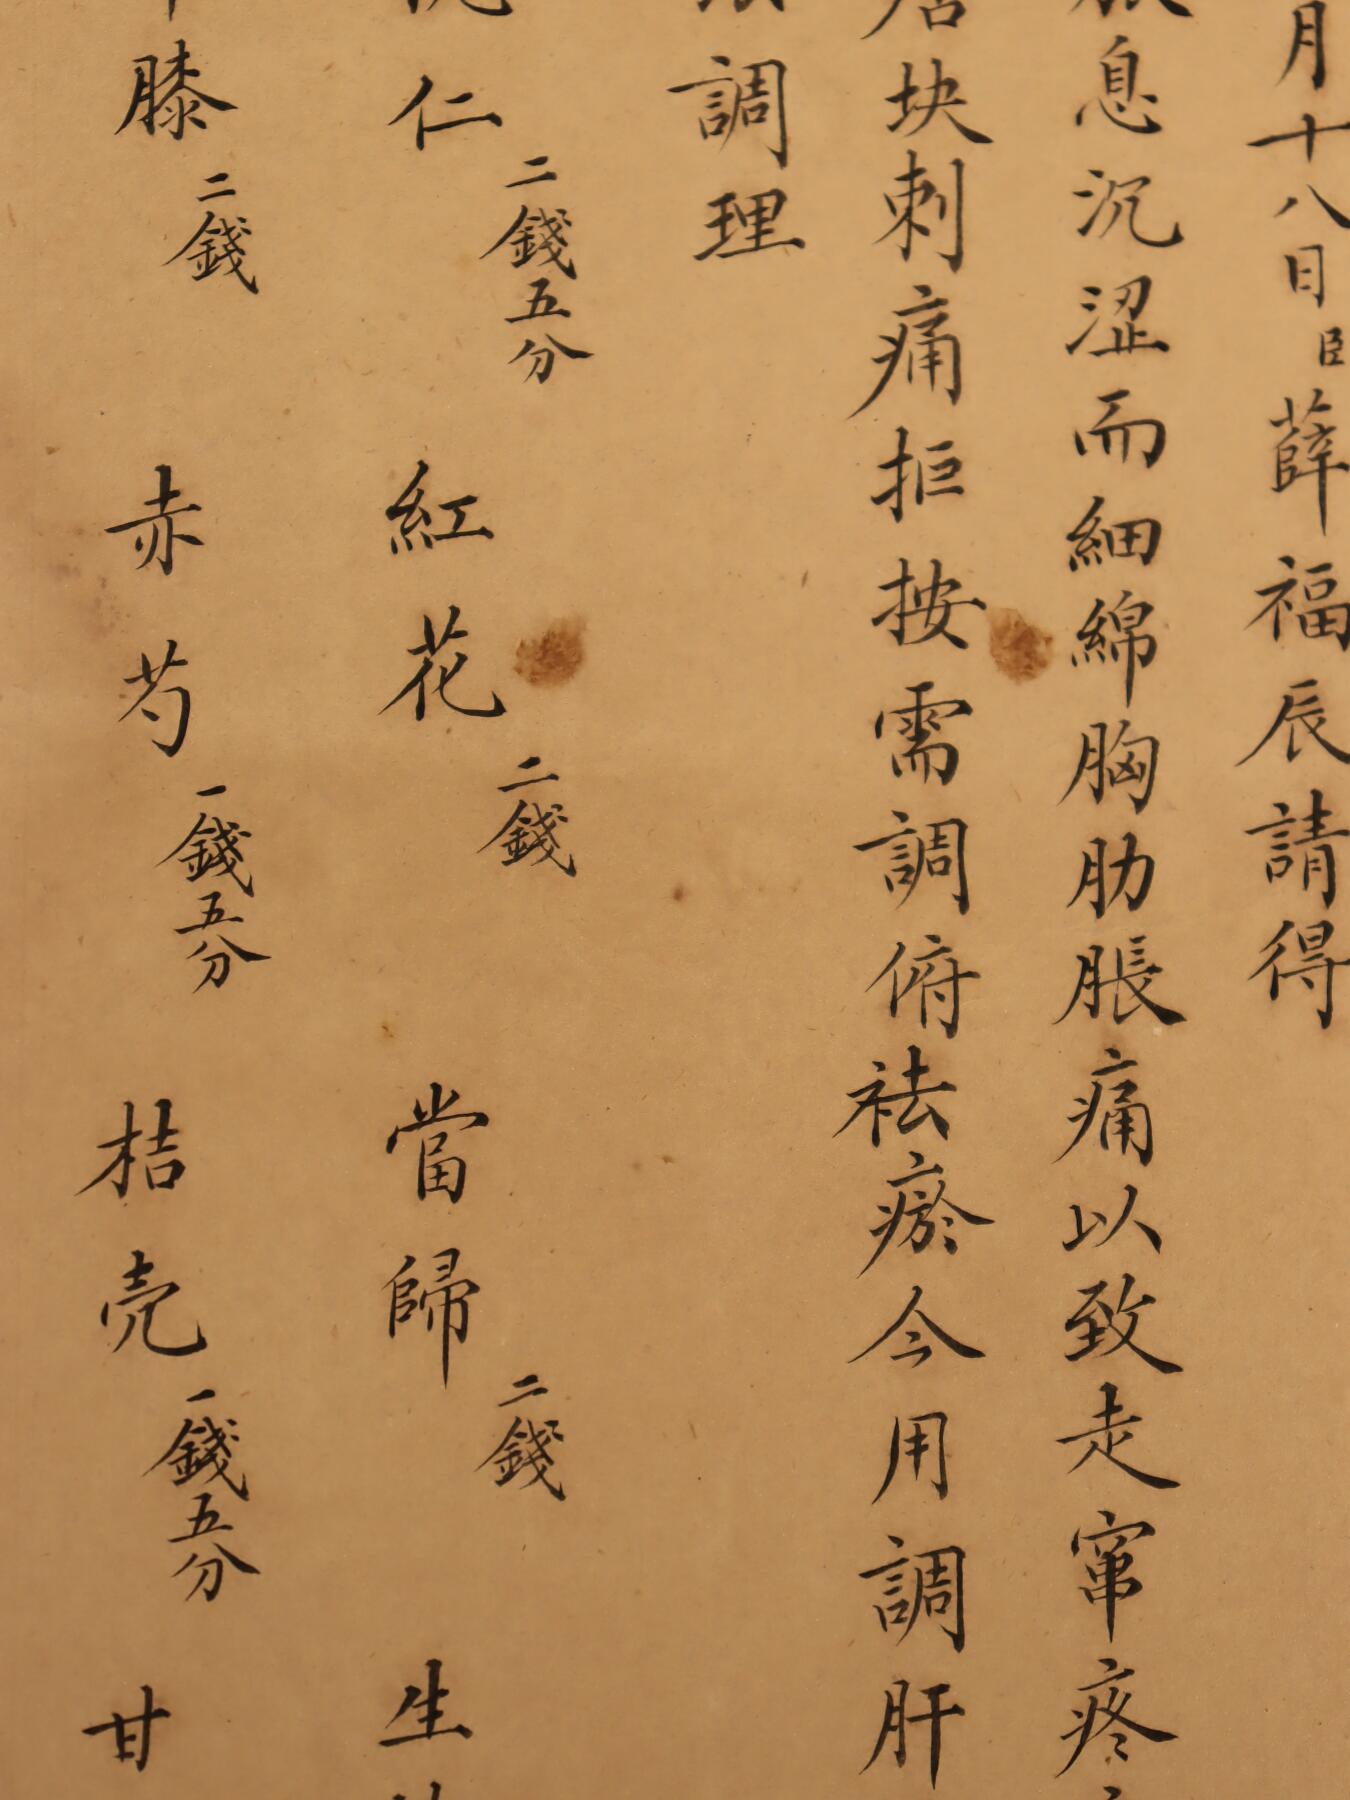 月十八日臣薛福辰請得
脹息沉涩而細綿胸肋脹痛以致走窜疼
块刺痛拒按需調俯祛瘀今用調肝
調理
仁二錢五分 紅花二錢 當歸二錢 生
膝二錢 赤芍一錢五分 桔壳一錢五分 甘